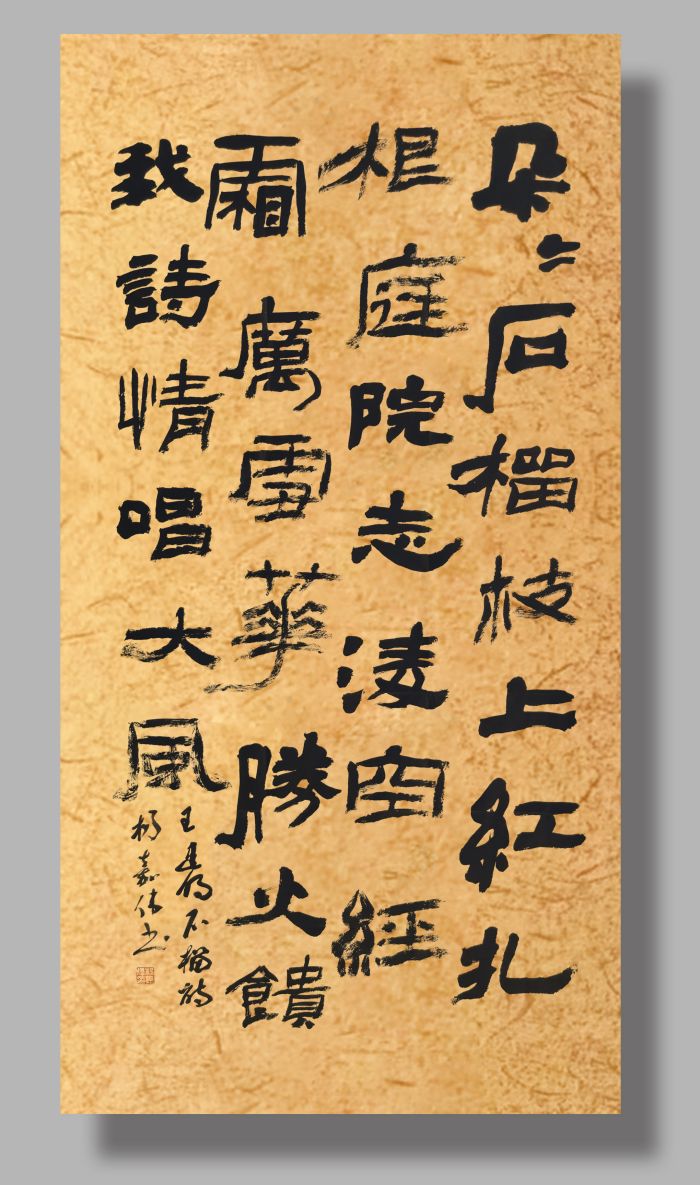 朵々石榴枝上紅扎
根庭院志凌空經
霜厲雪華勝火饋
我詩情唱大風
王石榴詩
楊嘉偉書